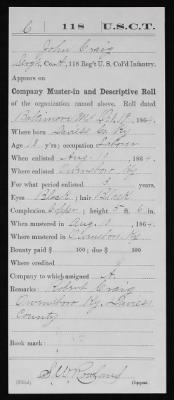 C | 118 | U.S.C.T.
John Craig
Sergt., Co. A, 118 Reg't U. S. Col'd Infantry.
Appears on
Company Muster-in and Descriptive Roll
of the organization named above. Roll dated
Baltimore Md Oct 19, 1864.
Where born Daviess Co. Ky
Age 18 y'rs; occupation Laborer
When enlisted Aug. 10, 1864.
Where enlisted Owensboro Ky
For what period enlisted 3 years.
Eyes Black; hair Black
Complexion Copper; height 5 ft. 6 in.
When mustered in Aug. 10, 1864.
Where mustered in Owensboro Ky
Bounty paid $ 100; due $ 100
Where credited
Company to which assigned A
Remarks: Robert Craig
Owensboro Ky, Daviess
County
Book mark:
Copyist.